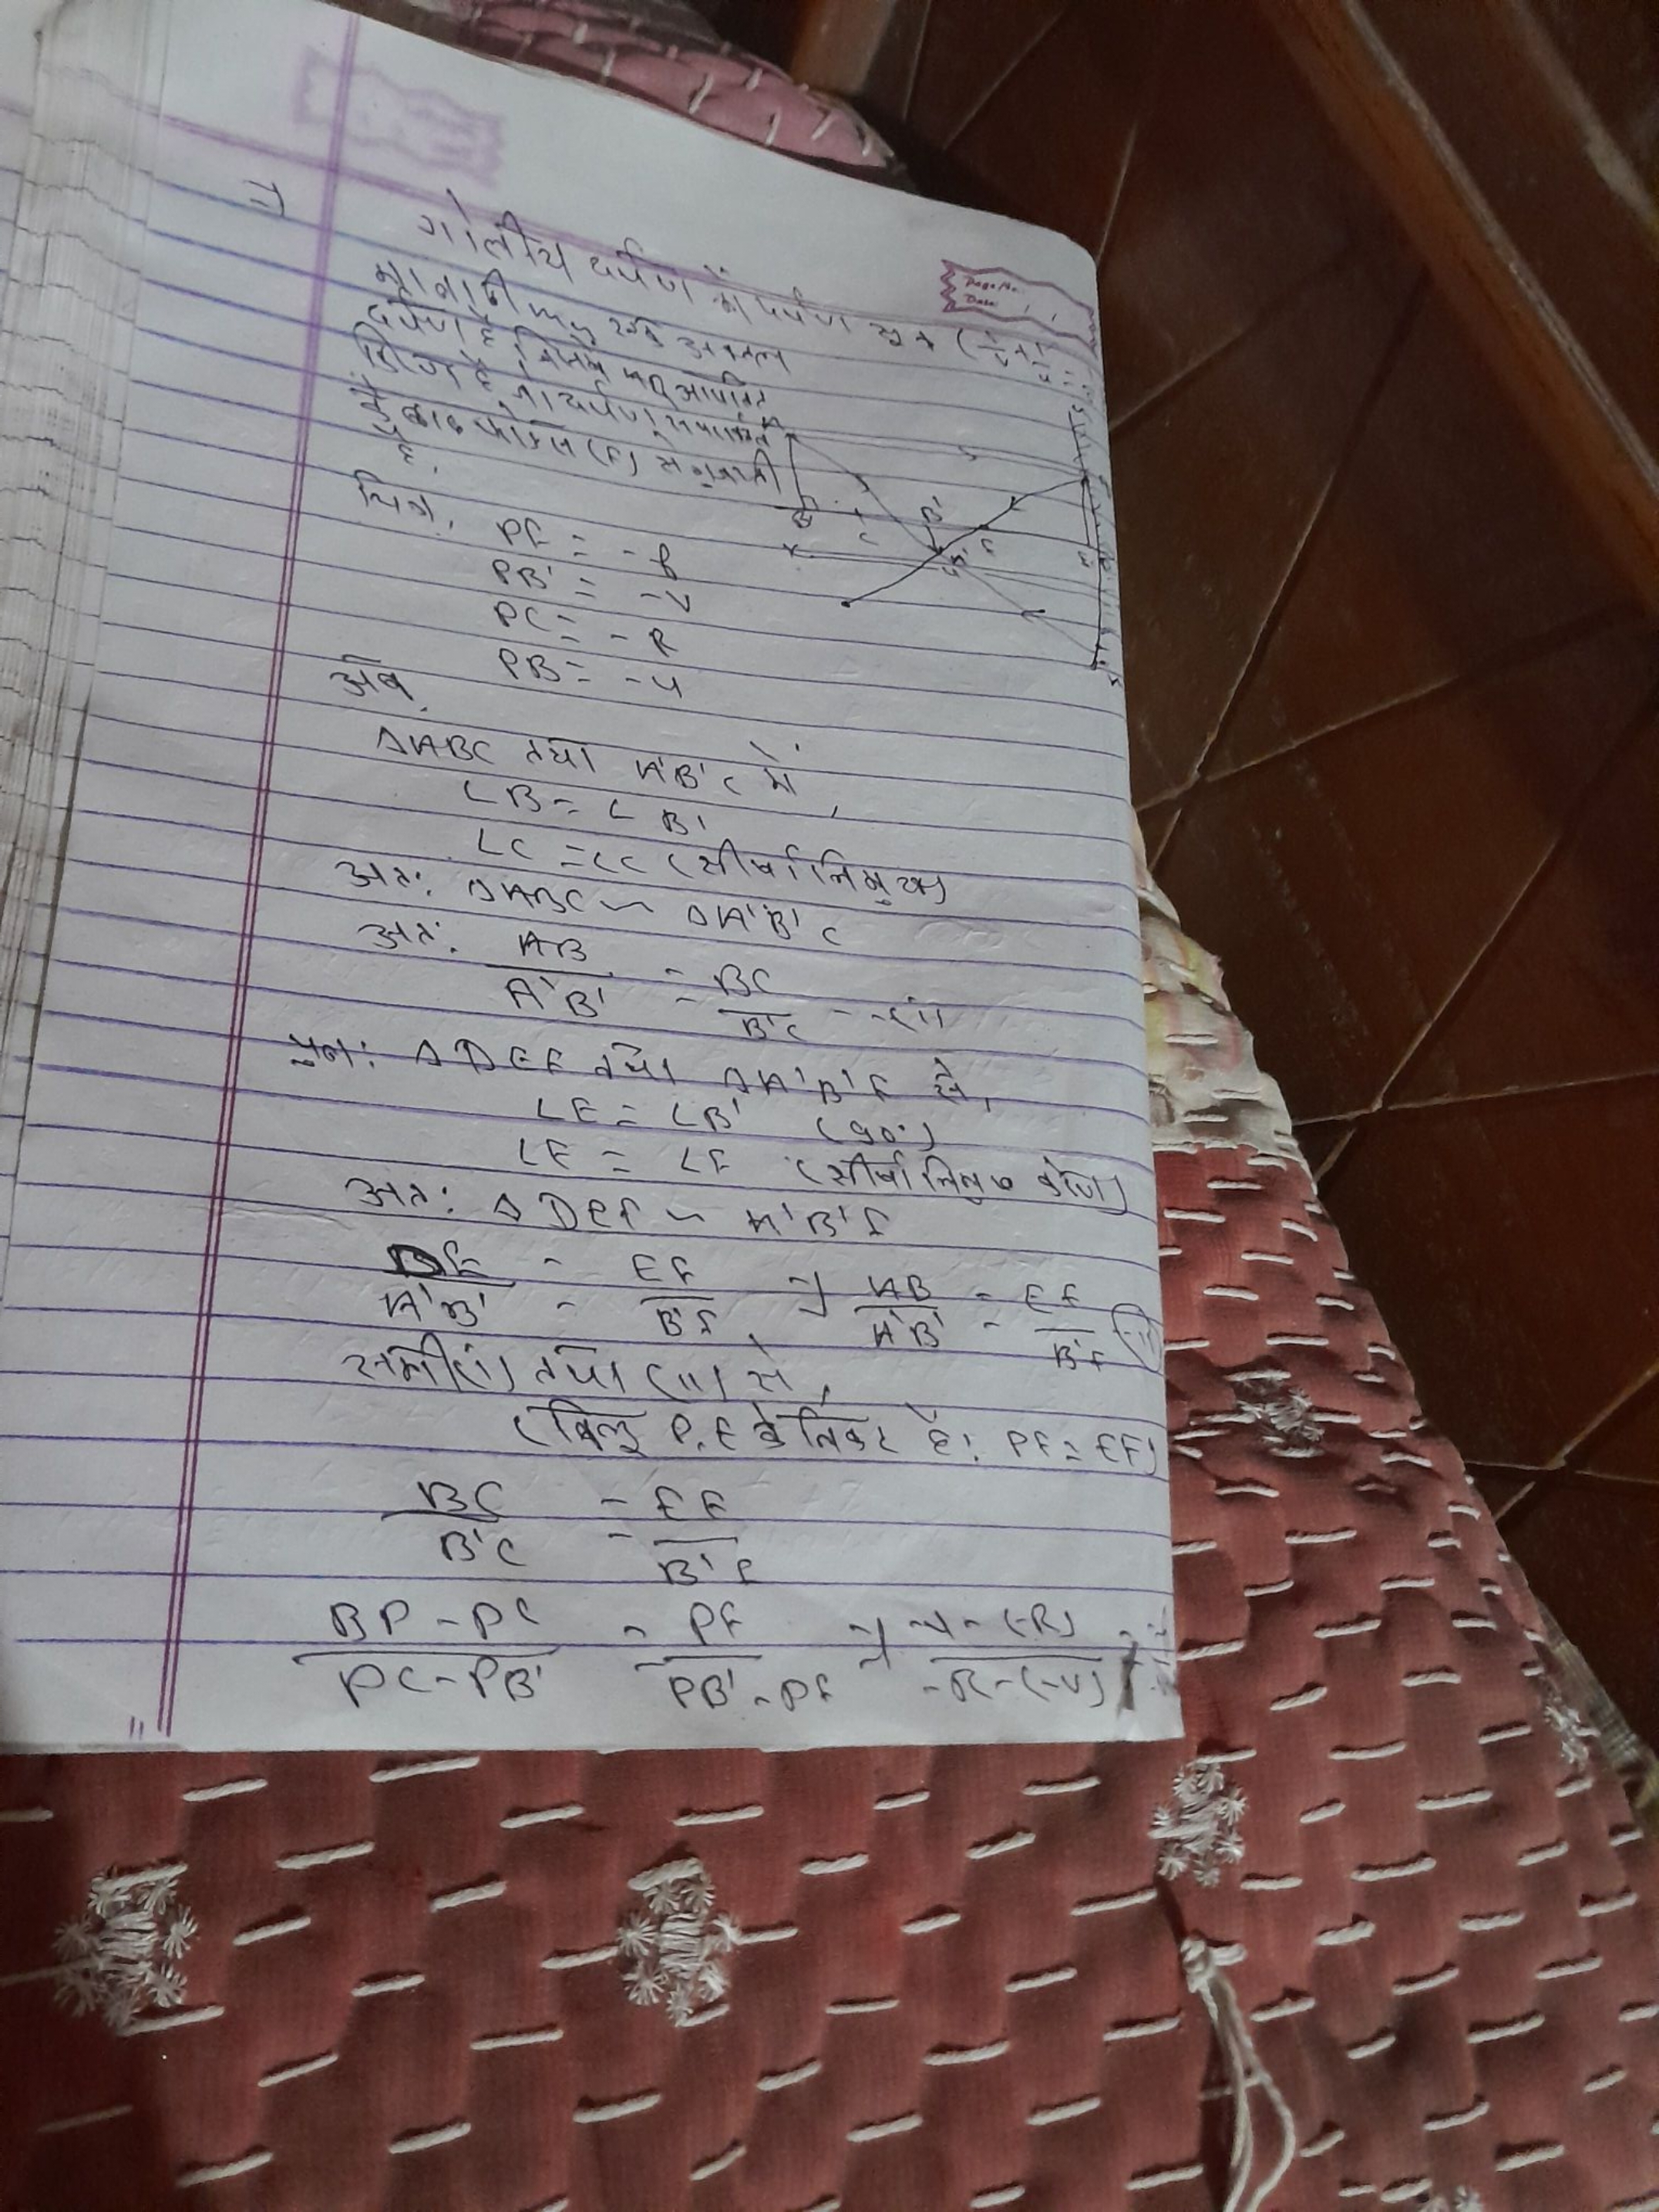 गोलीय दर्पण का दर्पण सूत्र (1/v + 1/u =
Page No.
Date
माना कि MM' एक अवतल
दर्पण है जिसके
है बाद फोकस (F) से गुजरती
है,
चित्र,
PF = -f
PB' = -v
PC = -R
PB = -u
अब,
ΔABC तथा A'B'C में,
∠B = ∠B'
∠C = ∠C (शीर्षाभिमुख)
अतः ΔABC ~ ΔA'B'C
अतः AB/A'B' = BC/B'C --(i)
पुनः ΔDEF तथा ΔA'B'F से,
∠E = ∠B' (90°)
∠F = ∠F (शीर्षाभिमुख कोण)
अतः ΔDEF ~ A'B'F
DE/A'B' = EF/B'F ⇒ AB/A'B' = EF/B'F (ii)
समी (i) तथा (ii) से,
(बिन्दु P, E के निकट है। PF = EF)
BC/B'C = EF/B'F
BP-PC/PC-PB' = PF/PB'-PF ⇒ -u-(-R)/-R-(-v) =